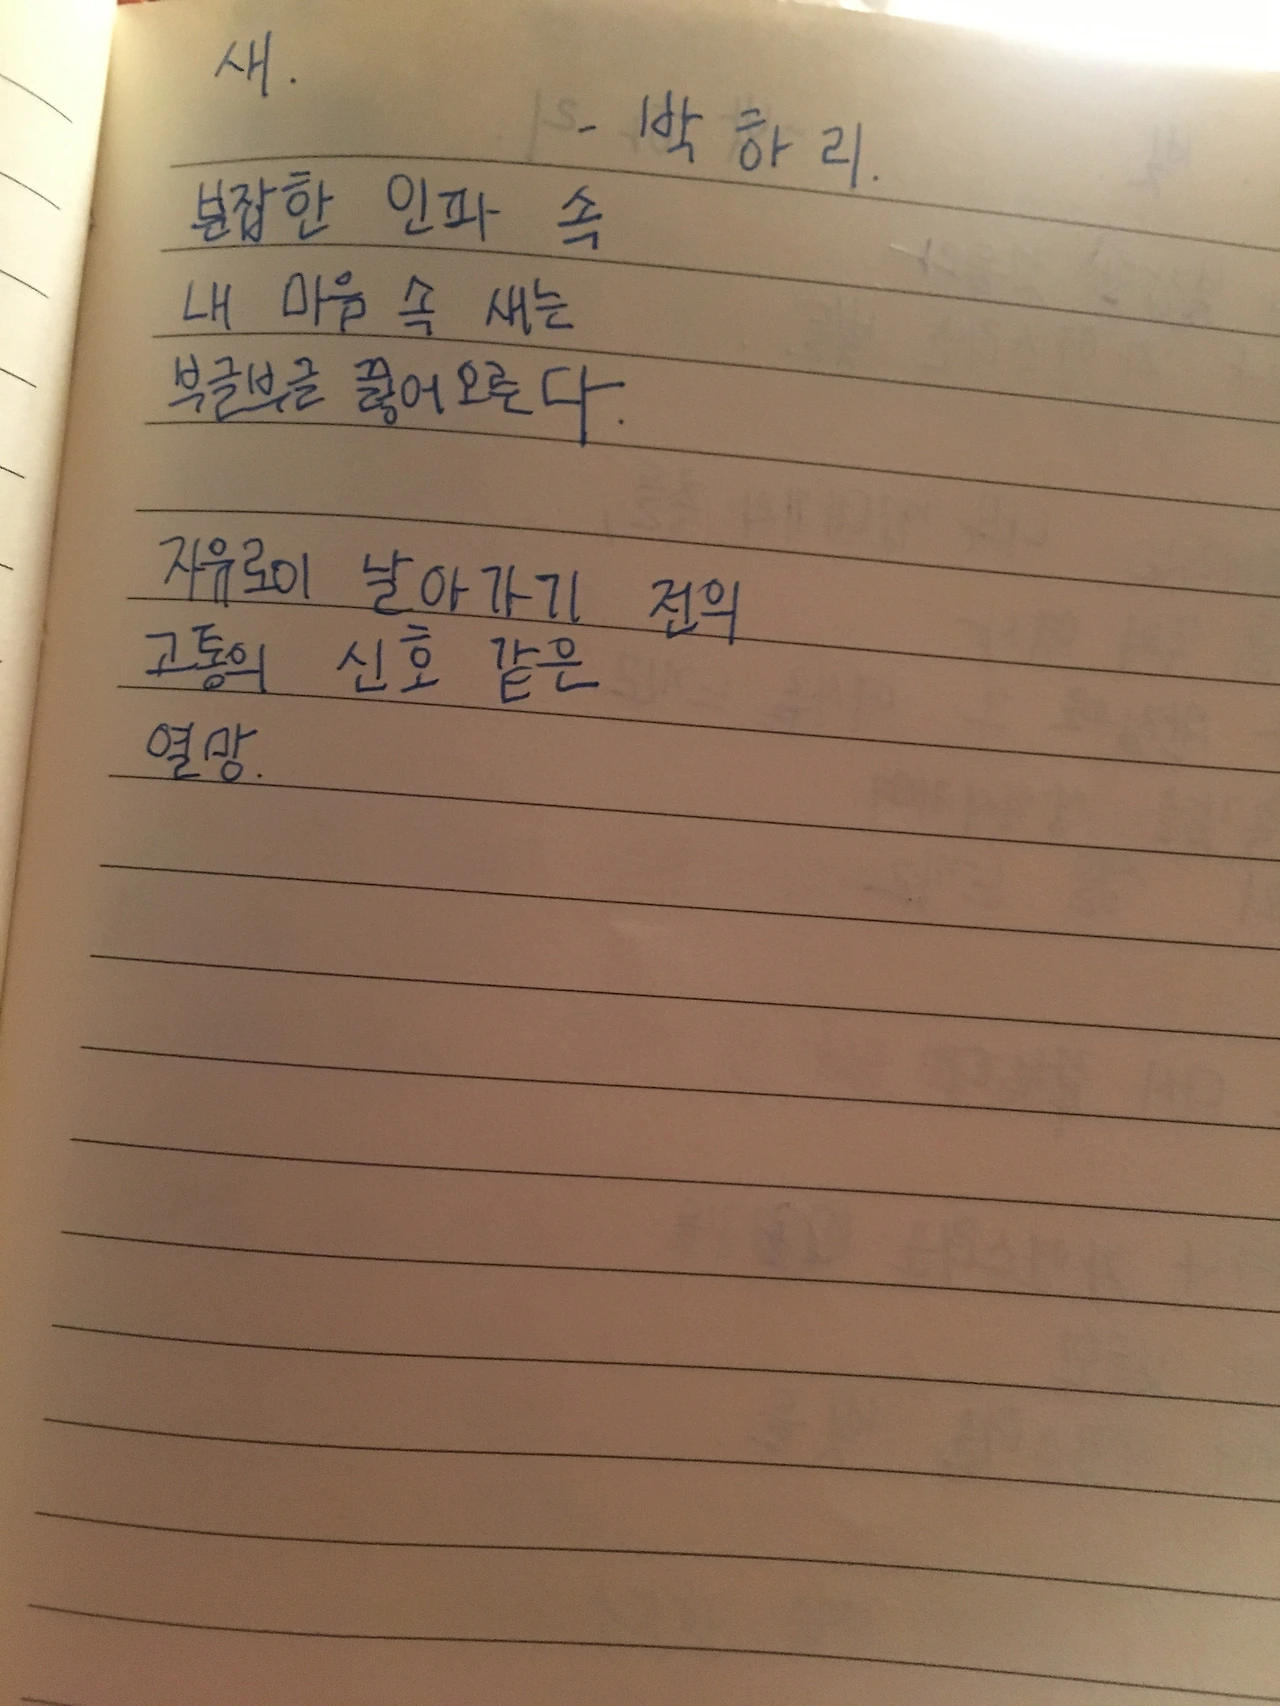 새.
- 박하리.
분잡한 인파 속
내 마음 속 새는
부글부글 끓어오른다.
자유로이 날아가기 전의
고통의 신호 같은
열망.